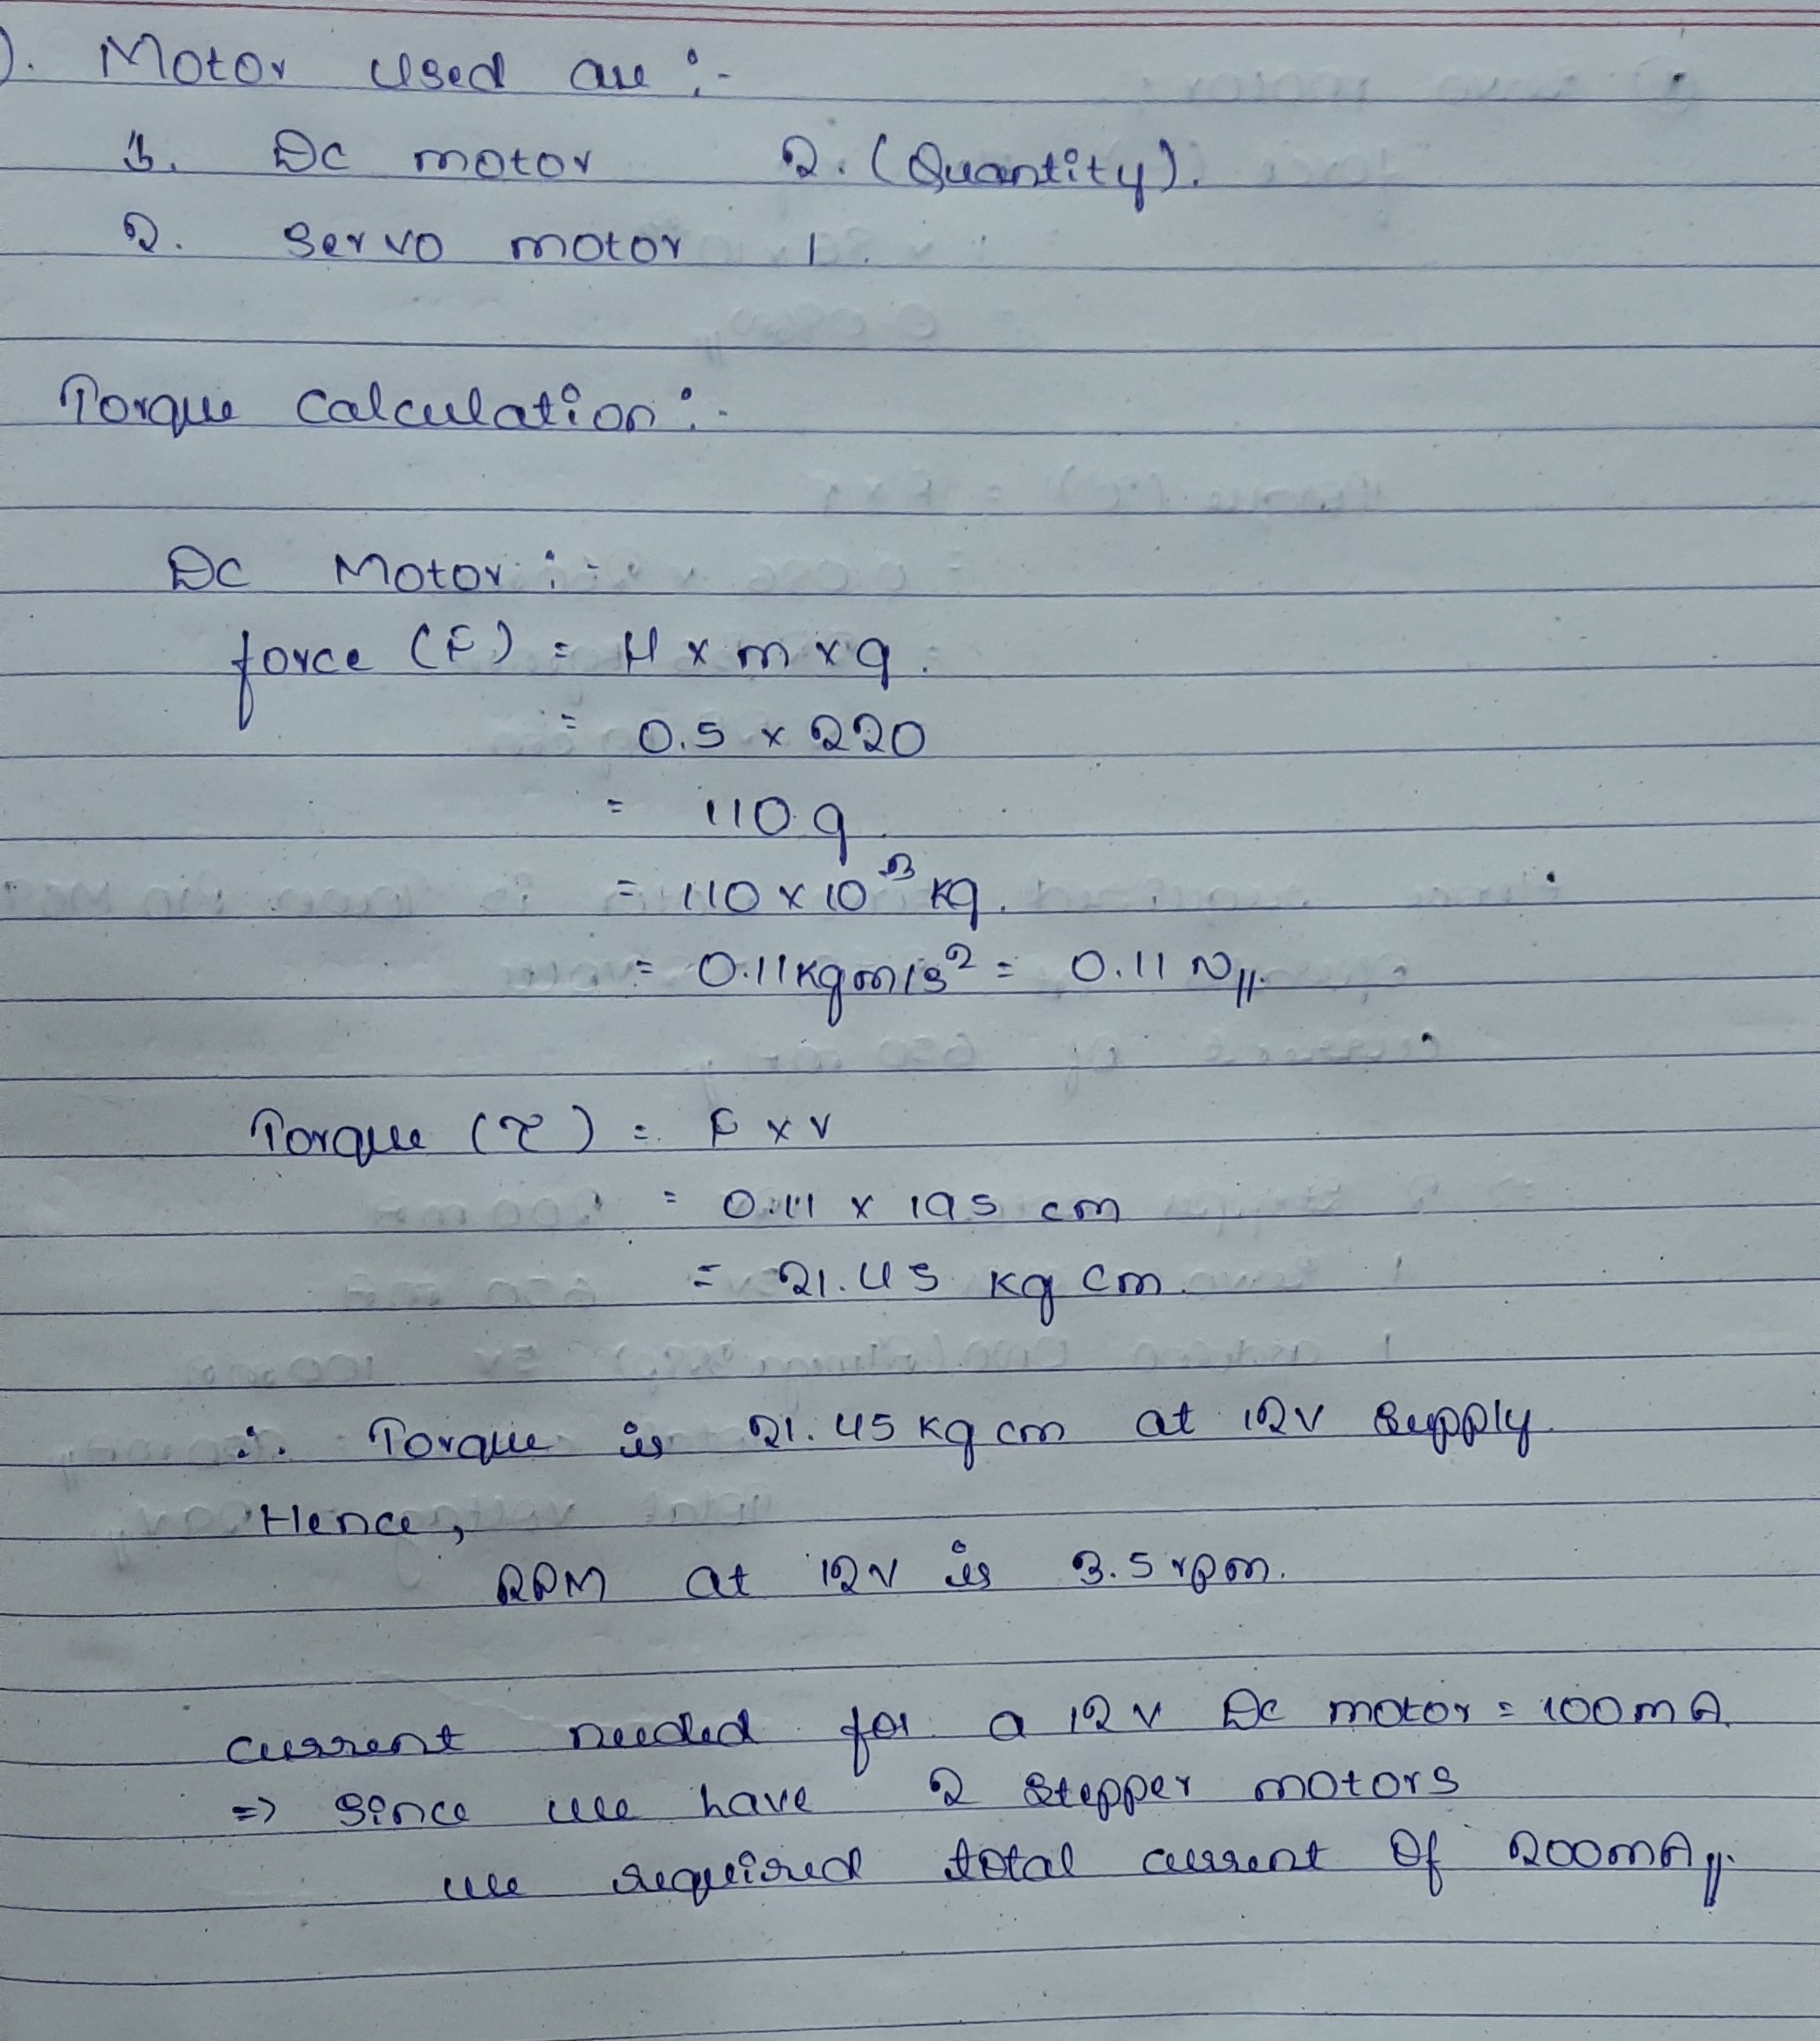 ). Motor used are :-
1. DC motor 2. (Quantity).
2. Servo motor 1.
Torque Calculation :-
DC Motor :-
force (F) = μ x m x g.
= 0.5 x 220
= 110 g
= 110 x 10⁻³ kg.
= 0.11 kgm/s² = 0.11 N//.
Torque (τ) = F x r
= 0.11 x 195 cm
= 21.45 kg cm.
∴ Torque is 21.45 kg cm at 12V supply.
Hence,
RPM at 12V is 3.5 rpm.
current needed for a 12 V DC motor = 100mA.
=> Since we have 2 stepper motors
we required total current of 200mA//.